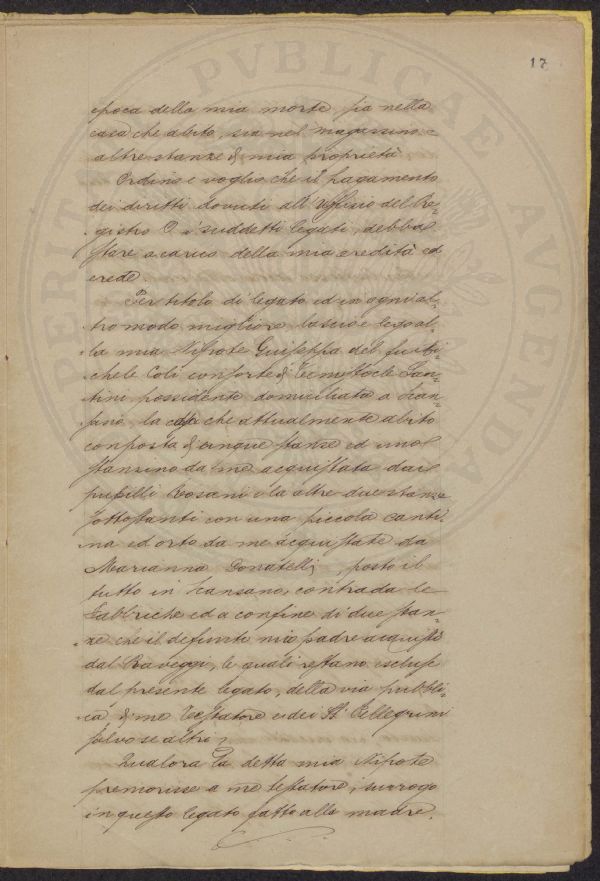 PVBLICAE
PERITAN AVGENDA
17
epoca della mia morte, sia nella
casa che abito, sia nel magazzino e
altre stanze di mia proprietà.
Ordino e voglio che il pagamento
dei diritti dovuti all'Uffizio del Re=
gistro suddetti legati, debba
stare a carico della mia eredità ed
erede.
Per titolo di legato ed in ogni al=
tro modo migliore, lascio e lego al=
la mia Nipote Giuseppa del fu Mi=
chele Coli consorte di Temistocle San=
tini possidente domiciliata a Scan=
sano, la casa che attualmente abito
composta di cinque stanze ed uno
stanzino da me acquistata dai
pupilli Rosani e la altre due stanze
sottostanti con una piccola canti=
na ed orto da me acquistate da
Marianna Donatelli, posto il
tutto in Scansano, contrada le
Fabbriche ed a confine di due stan=
ze che il defunto mio padre acquistò
dal Raveggi, le quali restano escluse
dal presente legato, della via pubbli=
ca, di me Testatore e dei Sti Pellegrini
salvo se altri,
Qualora la detta mia Nipote
premorisse a me testatore, surrogo
in questo legato fatto alla madre,